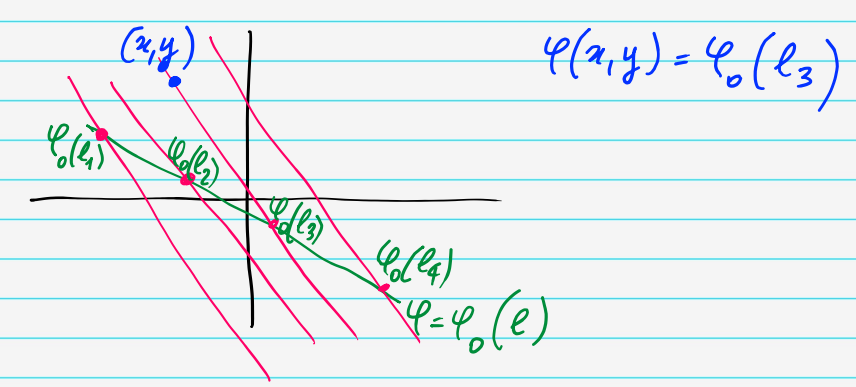 (x,y)
φ(x,y) = φ₀(ℓ₃)
φ₀(ℓ₁)
φ₀(ℓ₂)
φ₀(ℓ₃)
φ₀(ℓ₄)
φ=φ₀(ℓ)